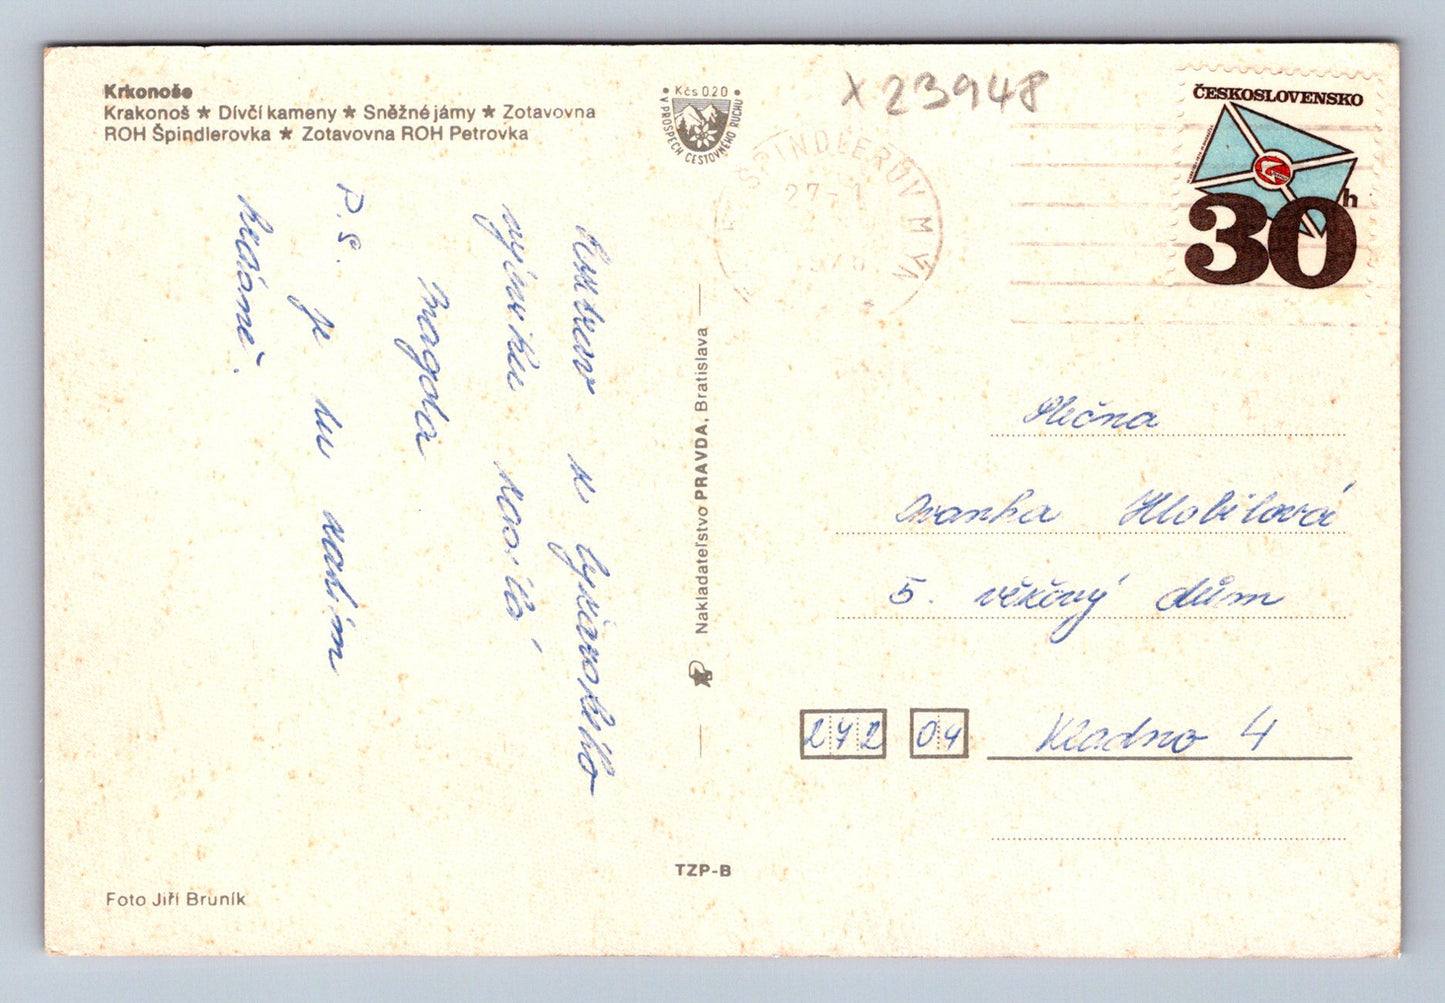 Krkonoše
Krakonoš ★ Dívčí kameny ★ Sněžné jámy ★ Zotavovna
ROH Špindlerovka ★ Zotavovna ROH Petrovka
Kčs 0.20
V PROSPECH CESTOVNÉHO RUCHU
X 23948
ŠPINDLERŮV MLÝN
27.-1
ČESKOSLOVENSKO
30h
z lyžařského
výcviku
Magda
P.S.
je mi
krásně.
Nakladateľstvo PRAVDA, Bratislava
Slečna
Ivanka Hlobilová
5. věžový dům
272 04 Kladno 4
TZP-B
Foto Jiří Bruník